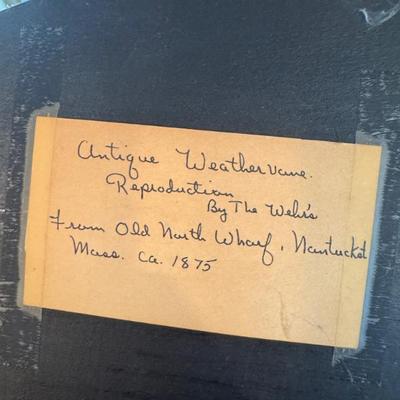 Antique Weathervane.
Reproduction
By The Wehr's
From Old North Wharf, Nantucket
Mass. ca. 1875